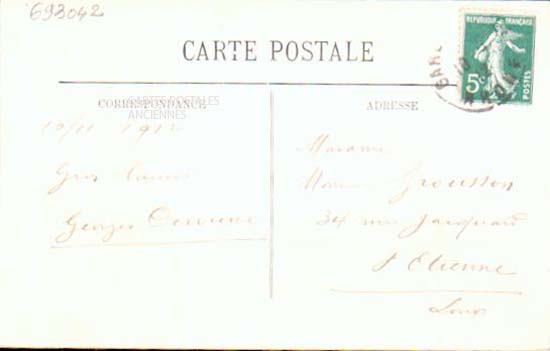 693042
CARTE POSTALE
REPUBLIQUE FRANÇAISE
5c
POSTES
CORRESPONDANCE
CARTES POSTALES
ANCIENNES
ADRESSE
10/11 1912
Georges
Madame
Grousson
34 rue Jacquard
St Etienne
Loire